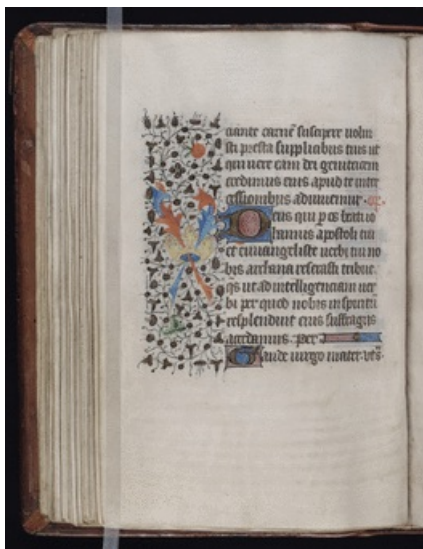 ciante carnē suscipere uolui
sti presta supplicibus tuis ut
qui uere eam dei genitricem
credimus eius apud te inter
cessionibus adiuuemur
Deus qui p os beati io
hannis apostoli tui
et euuangeliste uerbi tui no
bis archana reserasti tribue
qs ut ad intelligenciam uer
bi per quod nobis
resplenduit eius suffragiis
accedamus. Per
Gaude uirgo mater. vēs.